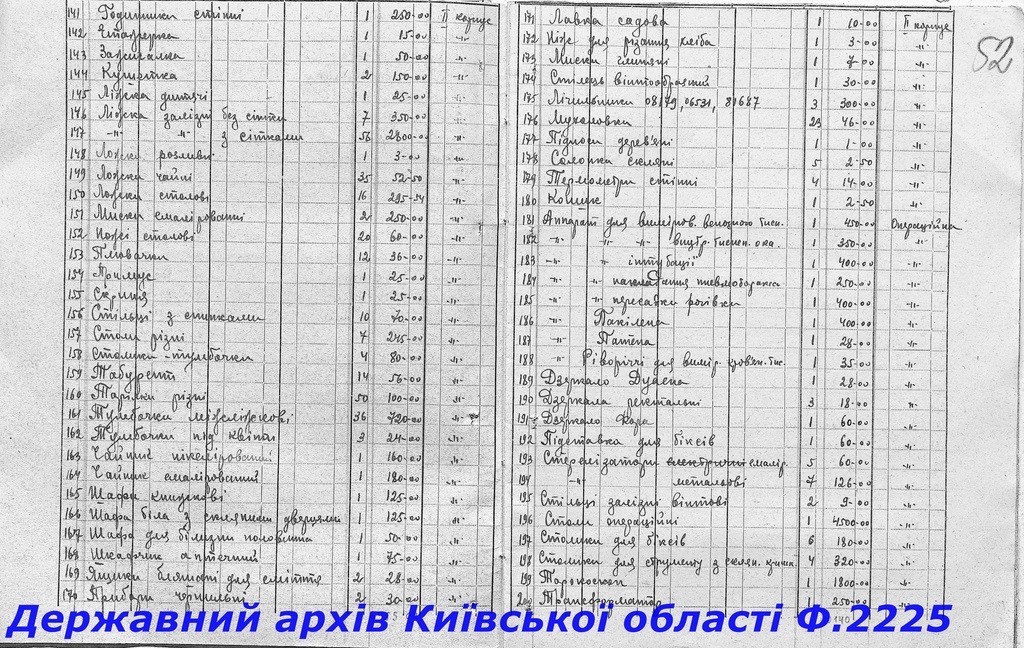 52
141 Годинники стінні 1 250-00 II корпус
142 Етажерка 1 15-00 -"-
143 1 50-00 -"-
144 Кушетка 2 150-00 -"-
145 Ліжка дитячі 1 25-00 -"-
146 Ліжка залізні без сітки 7 350-00 -"-
147 -"- " з сітками 56 2800-00 -"-
148 Ложки розливн. 1 3-00 -"-
149 Ложки чайні 35 52-50 -"-
150 Ложки столові 16 -"-
151 Миски емалірованні 2 250-00 -"-
152 Ножі столові 20 60-00 -"-
153 Плювачки 12 36-00 -"-
154 Примус 1 25-00 -"-
155 Скриня 1 25-00 -"-
156 Стільці з спинками 10 70-00 -"-
157 Столи різні 7 245-00 -"-
158 Столики-тумбочки 4 80-00 -"-
159 Табурети 14 56-00 -"-
160 Тарілки різні 50 100-00 -"-
161 Тумбочки міжліжкові 36 720-00 -"-
162 Тумбочки під квіти 3 24-00 -"-
163 Чайник нікелірований 1 160-00 -"-
164 Чайник емалірований 1 180-00 -"-
165 Шафа книжкові 1 125-00 -"-
166 Шафа біла з скляними дверцями 1 125-00 -"-
167 Шафа для білизни половинка 1 50-00 -"-
168 Шкафчик аптечний 1 75-00 -"-
169 Ящики бляшані для сміття 2 28-00 -"-
170 Прибори чорнильні 2 30-00 -"-
171 Лавка садова 1 10-00 II корпус
172 Ніж для різання хліба 1 3-00 -"-
173 Миски глиняні 1 7-00 -"-
174 Стілець вінтообразний 1 30-00 -"-
175 Лічильники 08179, 06531, 81687 3 300-00 -"-
176 Мухоловки 23 46-00 -"-
177 Підноси дерев'яні 1 1-00 -"-
178 Солонка скляні 5 2-50 -"-
179 Термометри стінні 4 14-00 -"-
180 Кошик 1 2-50 -"-
181 Аппарат для виміров. венозного тиск. 1 450-00 Операційна
182 -"- " -"- внутр. тиснен. ока 1 350-00 -"-
183 -"- " інтубації 1 400-00 -"-
184 -"- " накладання пневмоторакса 1 250-00 -"-
185 -"- " пересадки рогівки 1 400-00 -"-
186 -"- Пакілена 1 400-00 -"-
187 -"- Патена 1 28-00 -"-
188 -"- Ріворіччі для вимір. кров'ян. тис. 1 35-00 -"-
189 Дзеркало Дуаена 1 28-00 -"-
190 Дзеркала ректальні 3 18-00 -"-
191 Дзеркало 1 60-00 -"-
192 Підставка для біксів 1 60-00 -"-
193 Стерелізатори електричні емалір. 5 60-00 -"-
194 -"- метальові 7 126-00 -"-
195 Стільці залізні вінтові 2 9-00 -"-
196 Столи операційні 1 4500-00 -"-
197 Столики для біксів 6 180-00 -"-
198 Столики для струменту з склян. 4 320-00 -"-
199 Торокоскоп 1 1800-00 -"-
200 Трансформатор 1 250-00 -"-
Державний архів Київської області Ф.2225